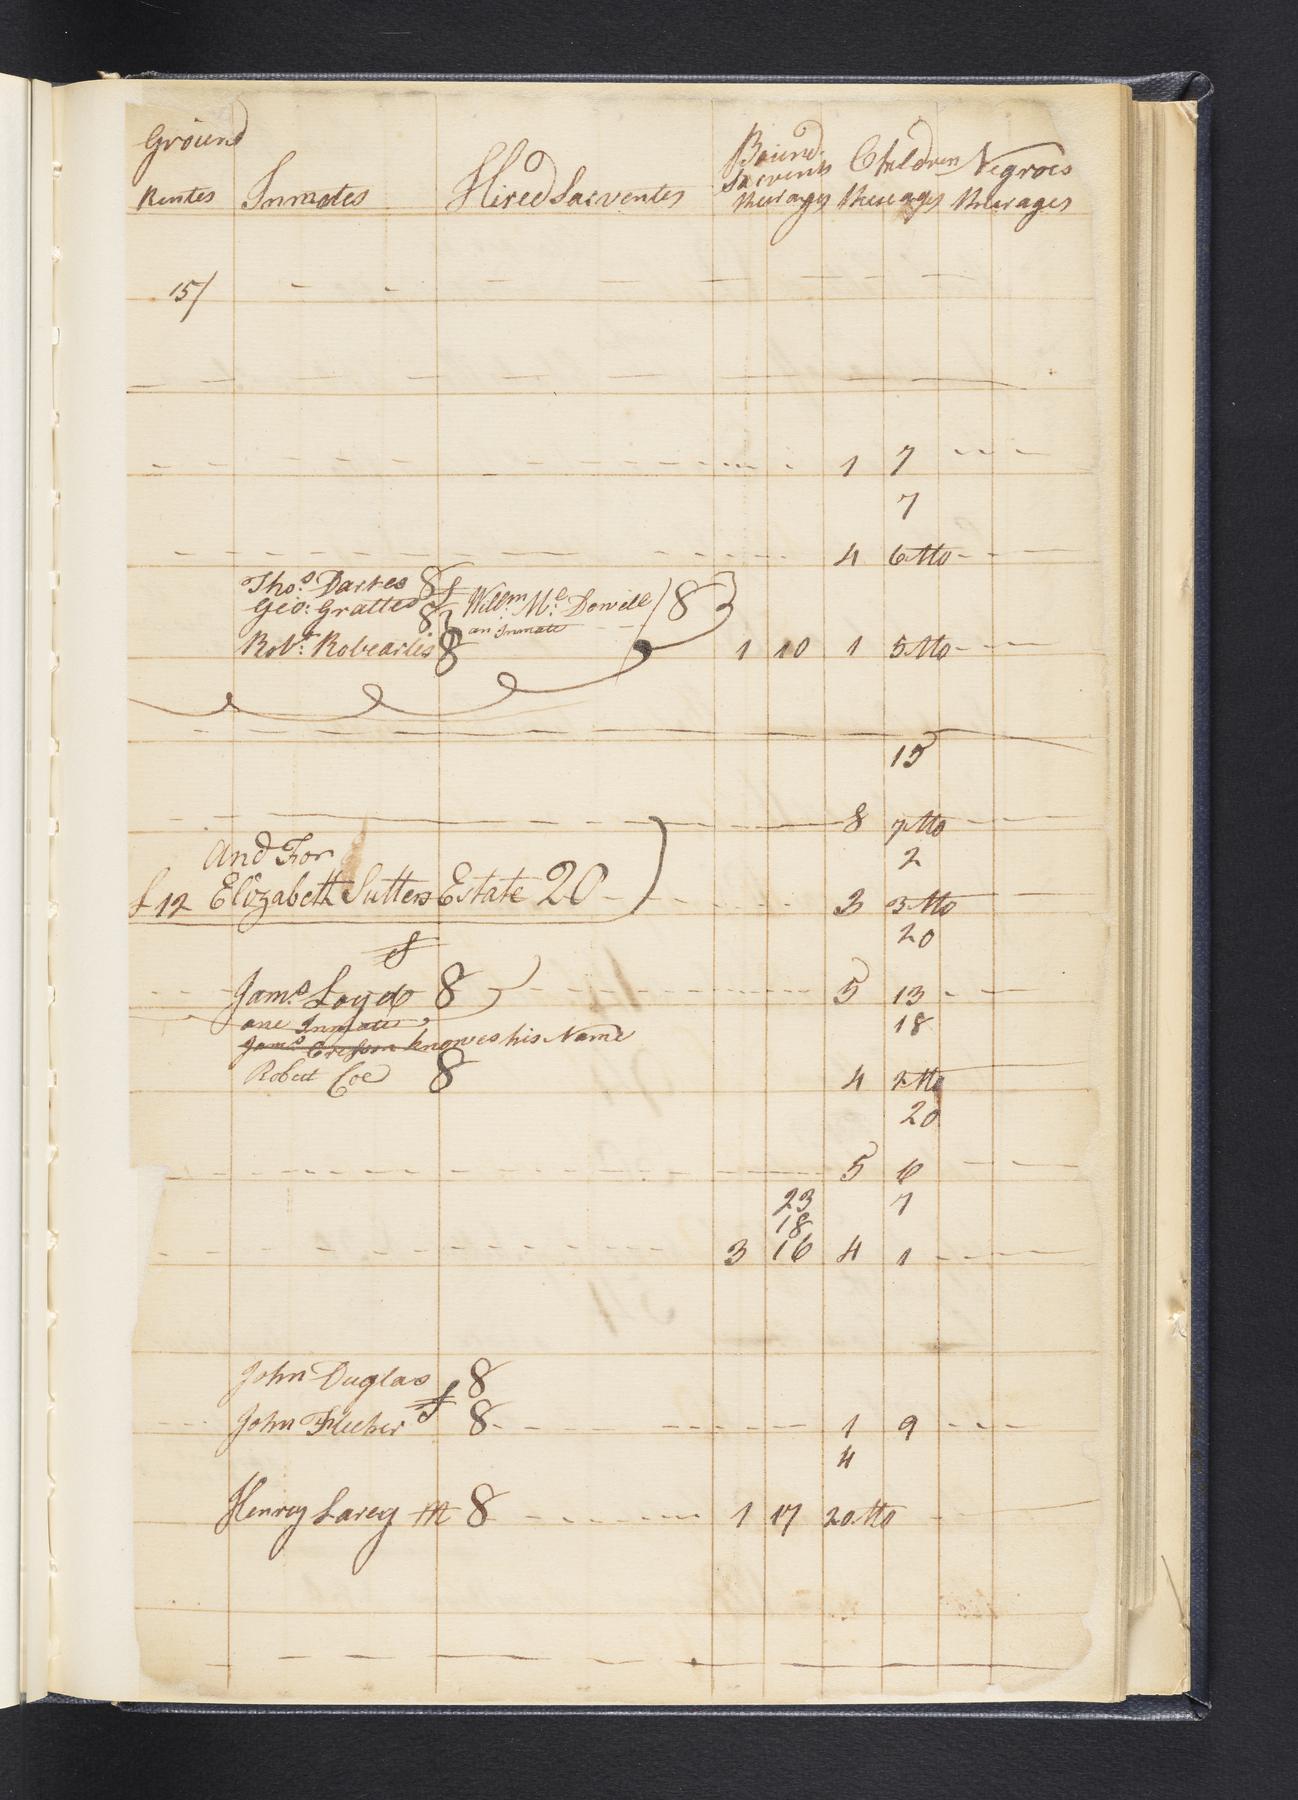 Ground
Rentes Inmates Hired Sarventes Bound Sarvents their ages Children their ages Negroes their ages
15/
1 7
7
4 6 Mo
Thos. Dartes 8
Geo: Gratteo 8 Willm. Mc. Dowell 8
an Inmate
Robt. Robearts 8 1 10 1 5 Mo
15
8 7 Mo
And For 2
£ 12 Elizabeth Sutters Estate 20 3 3 Mo
20
Jams. Loyd 8 5 13
one Inmate 18
Jams. Cresson knowes his Name
Robert Coe 8 4 2 Mo
20
5 6
23 7
18
3 16 4 1
John Duglas 8
John Flecher 8 1 9
4
Henrey Larey 8 1 17 20 Mo